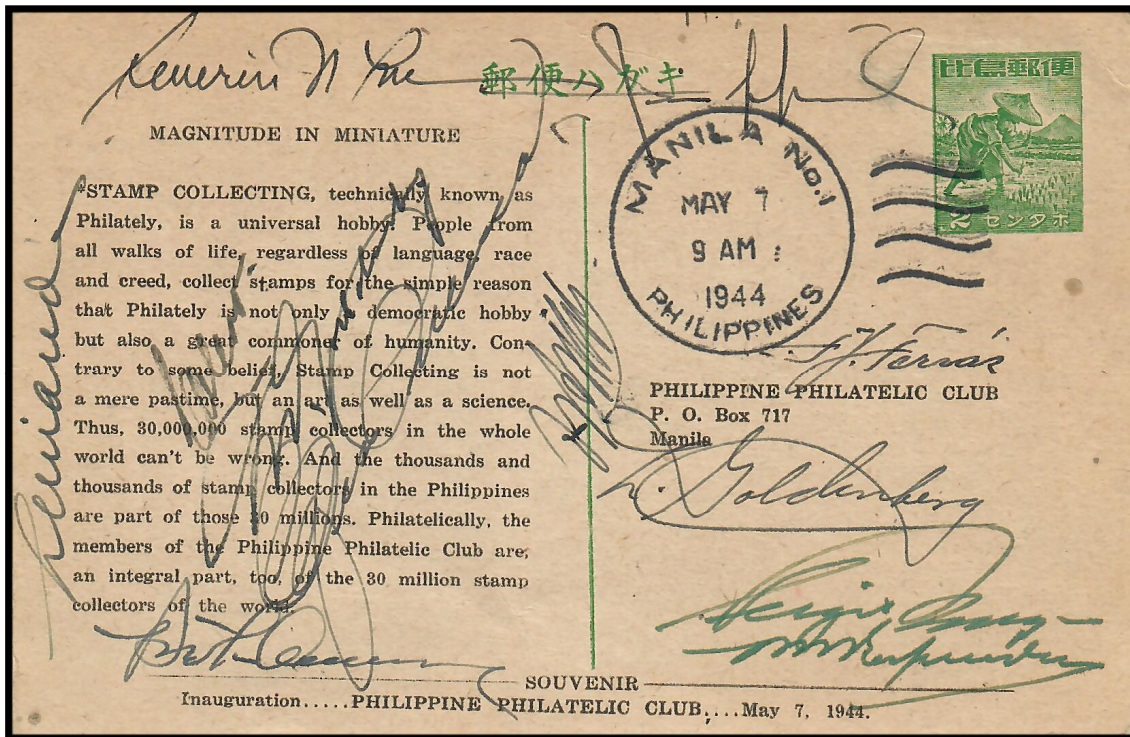 郵便ハガキ
比島郵便
2 センタボ
MANILA No. 1
MAY 7
9 AM
1944
PHILIPPINES
MAGNITUDE IN MINIATURE
"STAMP COLLECTING, technically known as
Philately, is a universal hobby. People from
all walks of life, regardless of language, race
and creed, collect stamps for the simple reason
that Philately is not only a democratic hobby
but also a great commoner of humanity. Con-
trary to some belief, Stamp Collecting is not
a mere pastime, but an art as well as a science.
Thus, 30,000,000 stamp collectors in the whole
world can't be wrong. And the thousands and
thousands of stamp collectors in the Philippines
are part of those 30 millions. Philatelically, the
members of the Philippine Philatelic Club are,
an integral part, too, of the 30 million stamp
collectors of the world.
PHILIPPINE PHILATELIC CLUB
P. O. Box 717
Manila
Goldenberg
SOUVENIR
Inauguration.....PHILIPPINE PHILATELIC CLUB,....May 7, 1944.